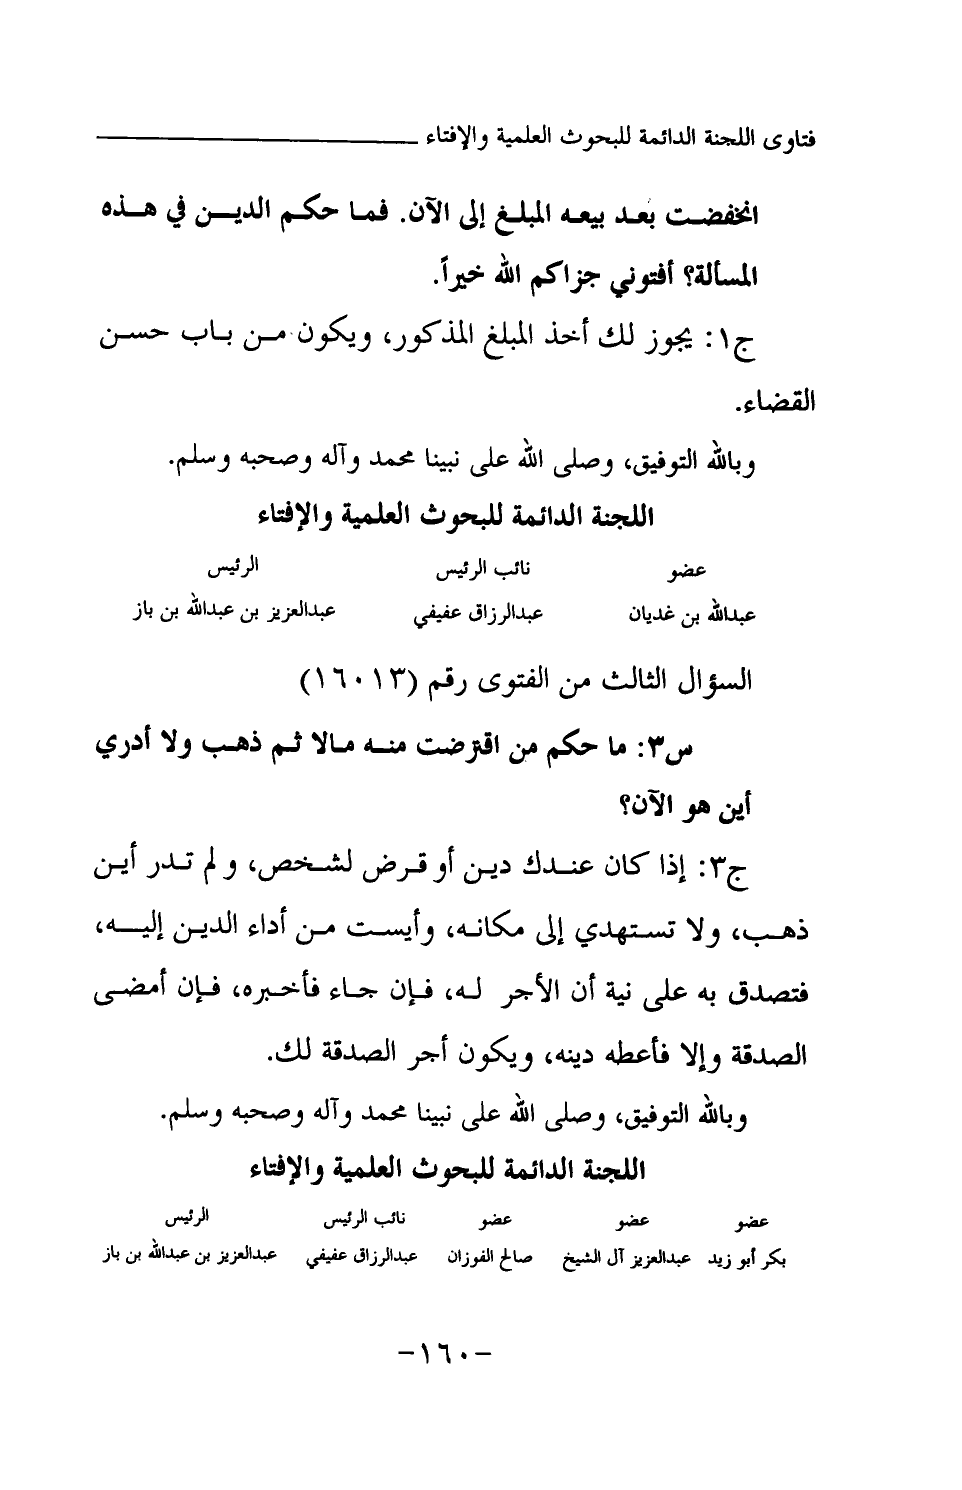 فتاوى اللجنة الدائمة للبحوث العلمية والإفتاء
انخفضت بعد بيعه المبلغ إلى الآن. فما حكم الدين في هذه
المسألة؟ أفتوني جزاكم الله خيراً.
ج١: يجوز لك أخذ المبلغ المذكور، ويكون من باب حسن
القضاء.
وبالله التوفيق، وصلى الله على نبينا محمد وآله وصحبه وسلم.
اللجنة الدائمة للبحوث العلمية والإفتاء
عضو نائب الرئيس الرئيس
عبدالله بن غديان عبدالرزاق عفيفي عبدالعزيز بن عبدالله بن باز
السؤال الثالث من الفتوى رقم (١٦٠١٣)
س٣: ما حكم من اقترضت منه مالا ثم ذهب ولا أدري
أين هو الآن؟
ج٣: إذا كان عندك دين أو قرض لشخص، ولم تدر أين
ذهب، ولا تستهدي إلى مكانه، وأيست من أداء الدين إليه،
فتصدق به على نية أن الأجر له، فإن جاء فأخبره، فإن أمضى
الصدقة وإلا فأعطه دينه، ويكون أجر الصدقة لك.
وبالله التوفيق، وصلى الله على نبينا محمد وآله وصحبه وسلم.
اللجنة الدائمة للبحوث العلمية والإفتاء
عضو عضو عضو نائب الرئيس الرئيس
بكر أبو زيد عبدالعزيز آل الشيخ صالح الفوزان عبدالرزاق عفيفي عبدالعزيز بن عبدالله بن باز
-١٦٠-